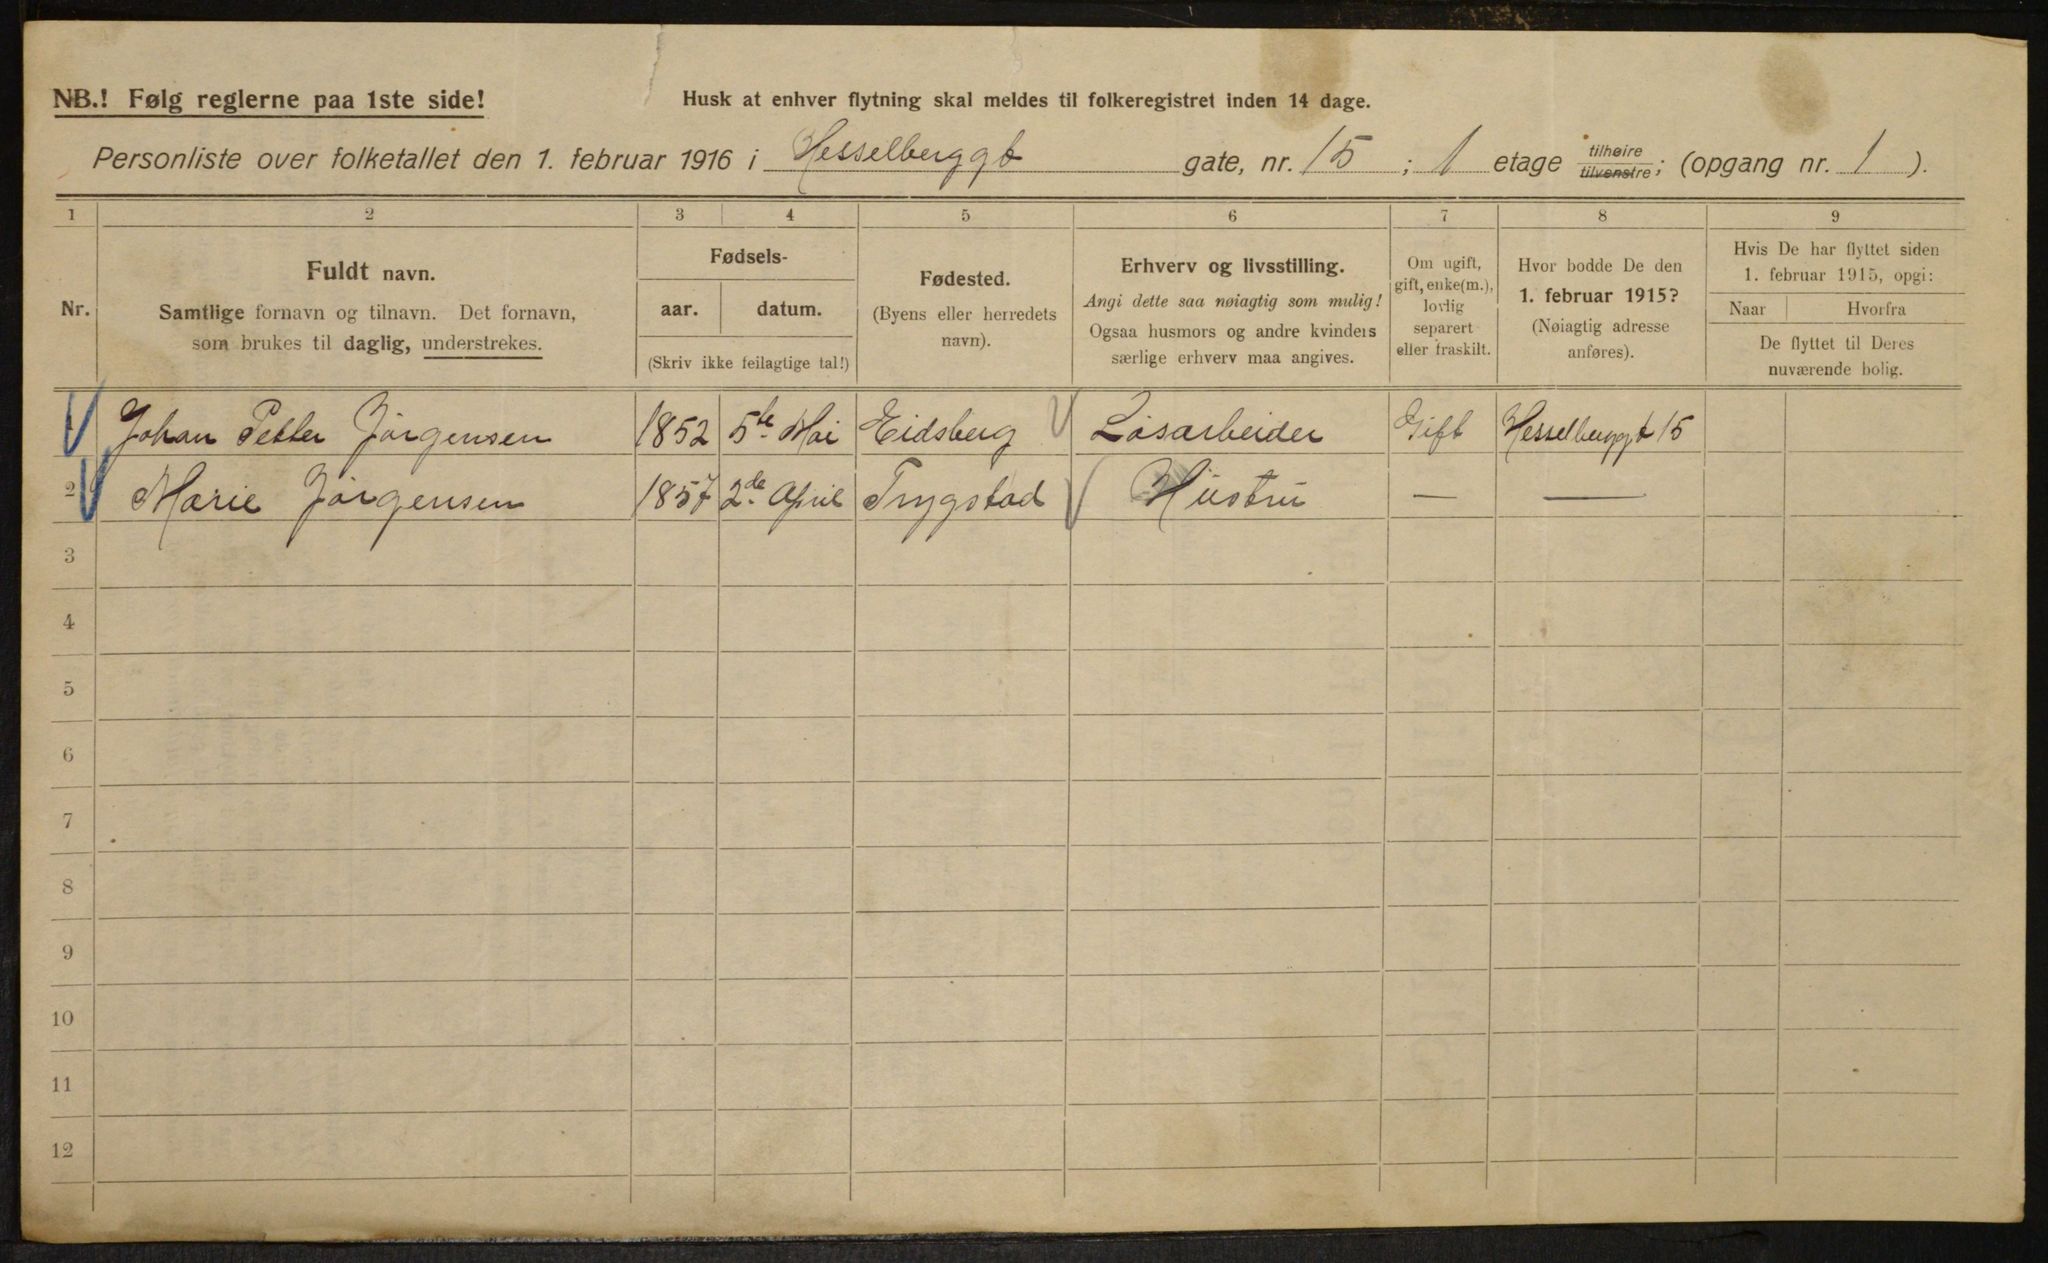 NB.! Følg reglerne paa 1ste side!
Husk at enhver flytning skal meldes til folkeregistret inden 14 dage.
Personliste over folketallet den 1. februar 1916 i Hesselberggt gate, nr. 15 ; 1 etage tilhøire tilvenstre; (opgang nr. 1 ).
1 2 3 4 5 6 7 8 9
Nr.
Fuldt navn.
Samtlige fornavn og tilnavn. Det fornavn,
som brukes til daglig, understrekes.
Fødsels-
aar. datum.
(Skriv ikke feilagtige tal!)
Fødested.
(Byens eller herredets
navn).
Erhverv og livsstilling.
Angi dette saa nøiagtig som mulig!
Ogsaa husmors og andre kvinders
særlige erhverv maa angives.
Om ugift,
gift, enke(m.),
lovlig
separert
eller fraskilt.
Hvor bodde De den
1. februar 1915?
(Nøiagtig adresse
anføres).
Hvis De har flyttet siden
1. februar 1915, opgi:
Naar Hvorfra
De flyttet til Deres
nuværende bolig.
1 Johan Petter Jörgensen 1852 5te Mai Eidsberg Løsarbeider Gift Hesselberggt 15
2 Marie Jörgensen 1857 2de April Trygstad Hustru — —
3
4
5
6
7
8
9
10
11
12